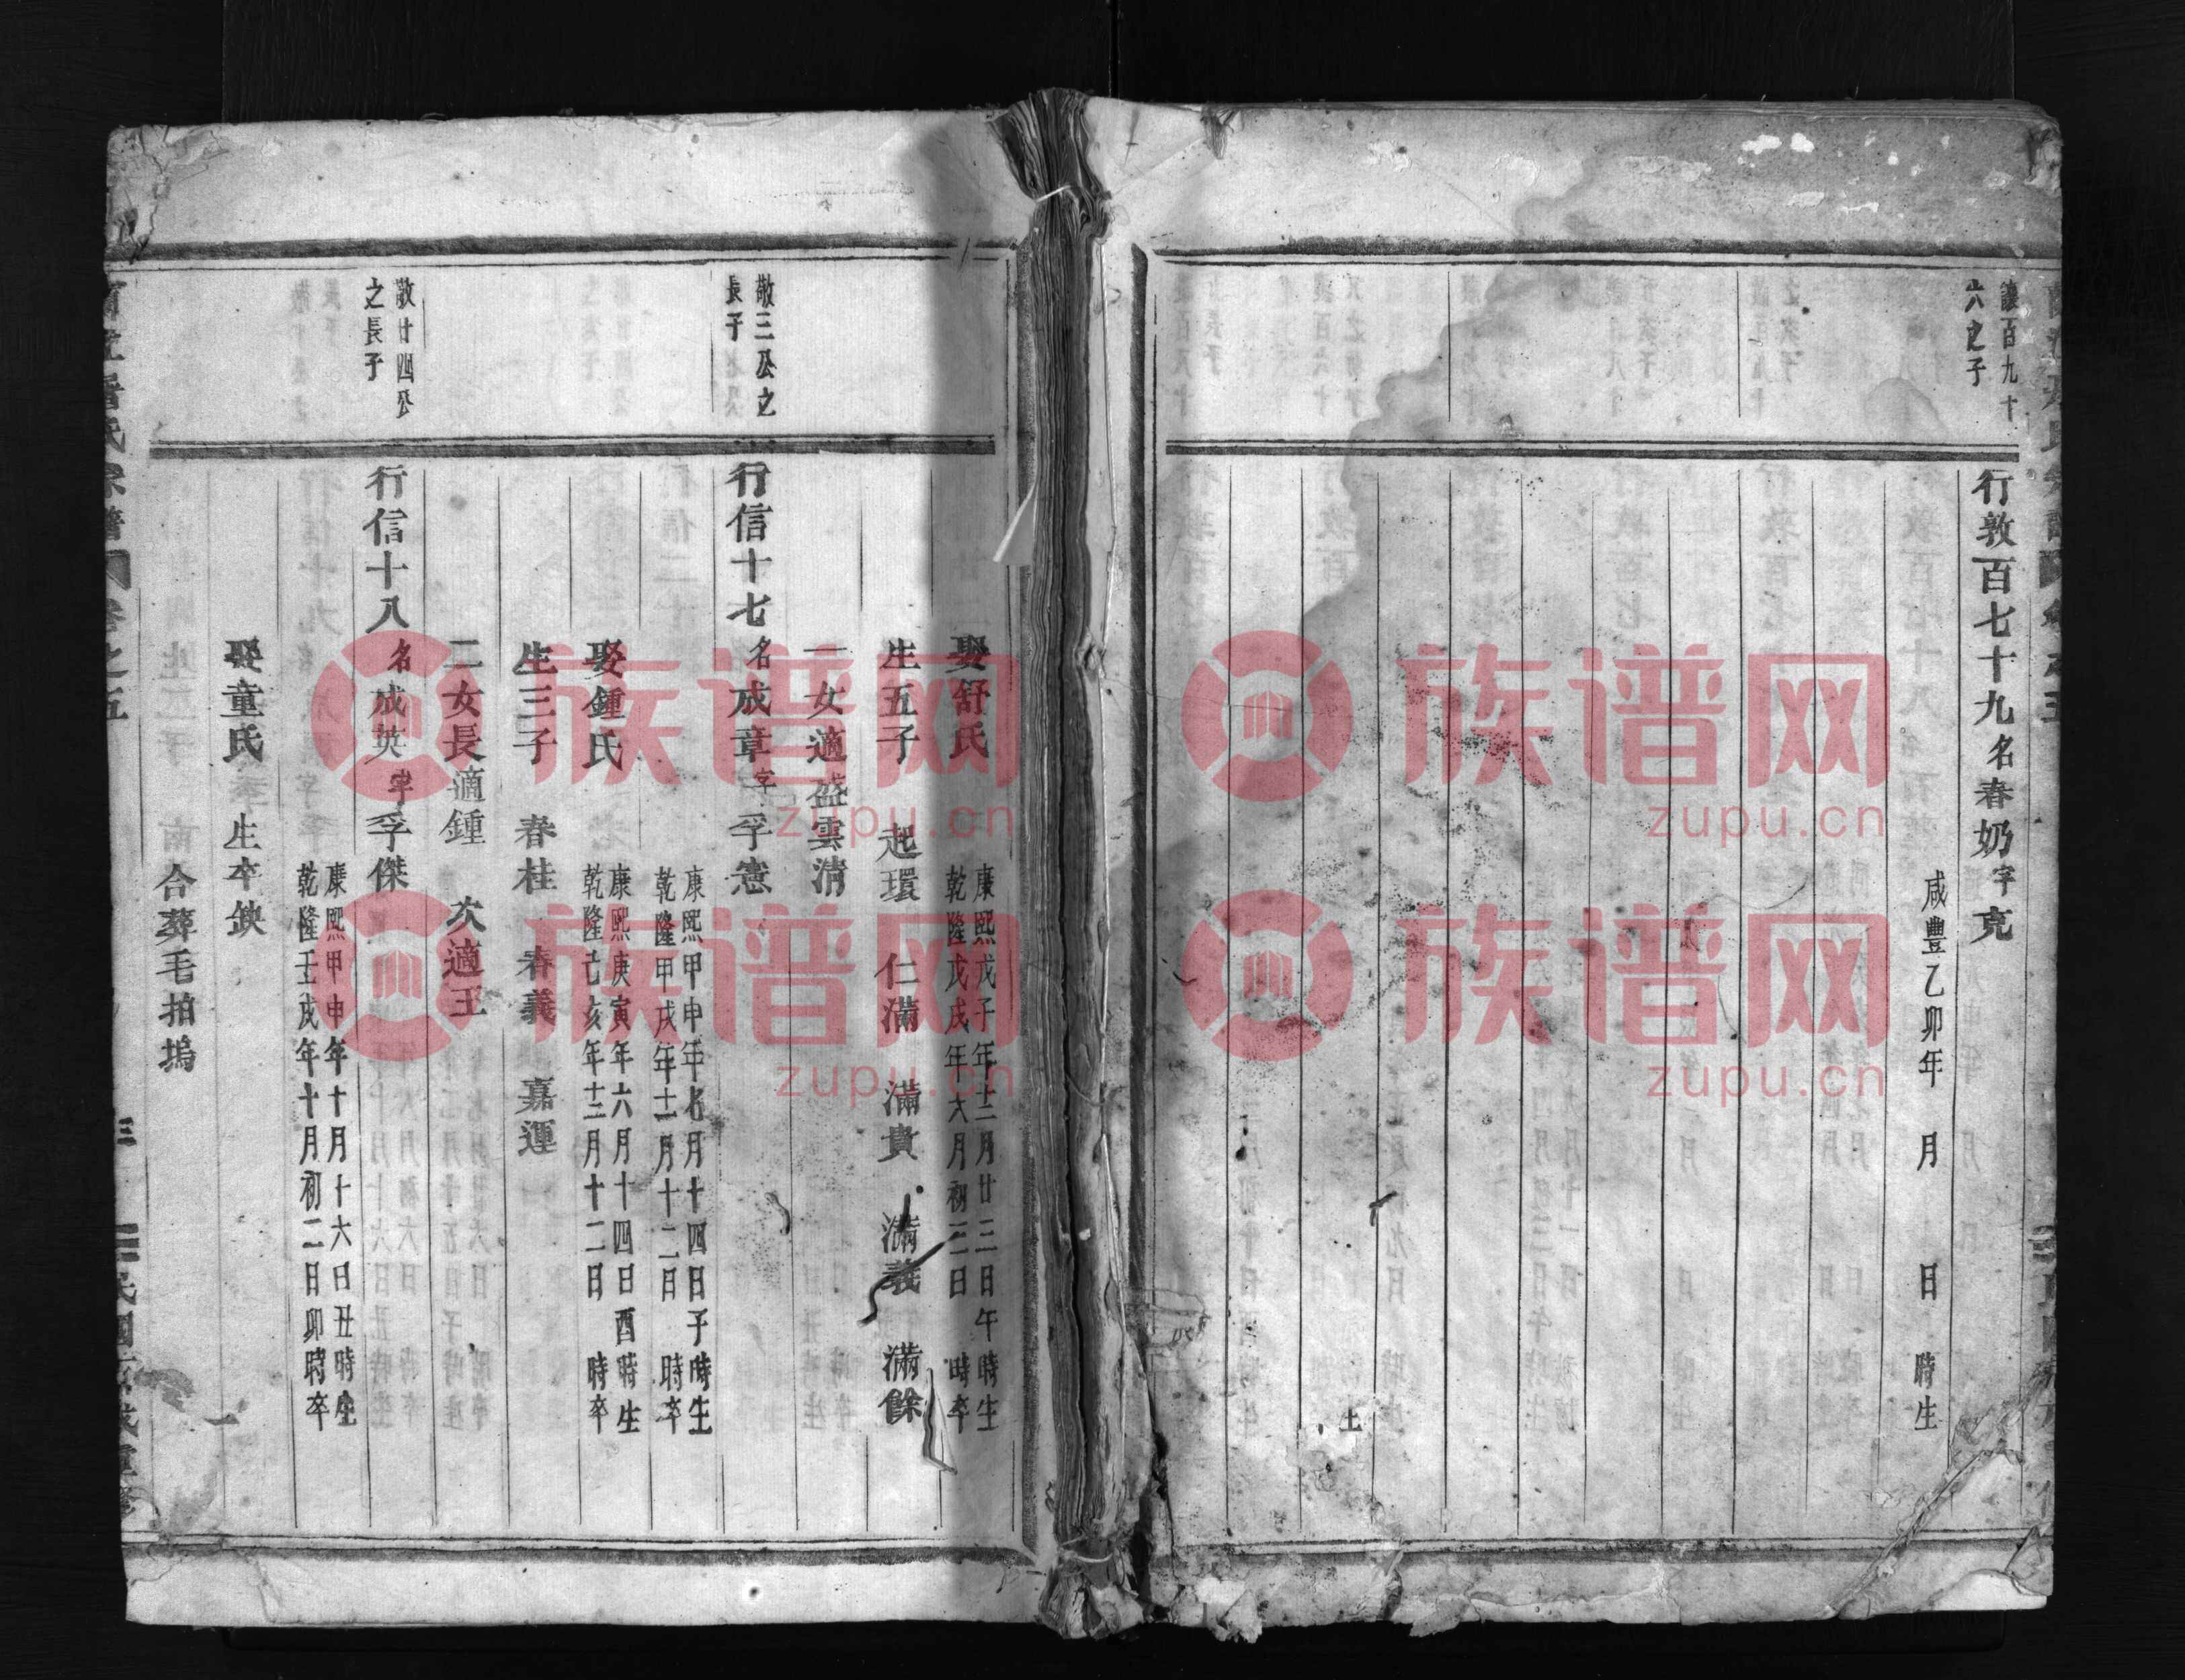 謙百九十
六之子
行敦百七十九名春奶字克
咸豐乙卯年 月 日 時生
生
娶舒氏
康熙戊子年十二月廿三日午時生
乾隆戊戌年六月初三日 時卒
生五子 起環 仁滿 滿貴 滿義 滿餘
一女適盛雲清
敬三公之
長子
行信十七名成章字孚憲
康熙甲申年七月十四日子時生
乾隆甲戌年十二月十二日 時卒
娶鍾氏
康熙庚寅年六月十四日酉時生
乾隆己亥年十二月十二日 時卒
生三子 春桂 春義 嘉運
二女長適鍾 次適王
敬廿四公
之長子
行信十八名成英字孚傑
康熙甲申年十月十六日丑時生
乾隆壬戌年十月初二日卯時卒
娶童氏 生卒缺
合葬毛拍塢
氏宗譜 卷之五
三
族谱网
zupu.cn
族谱网
zupu.cn
族谱网
zupu.cn
族谱网
zupu.cn